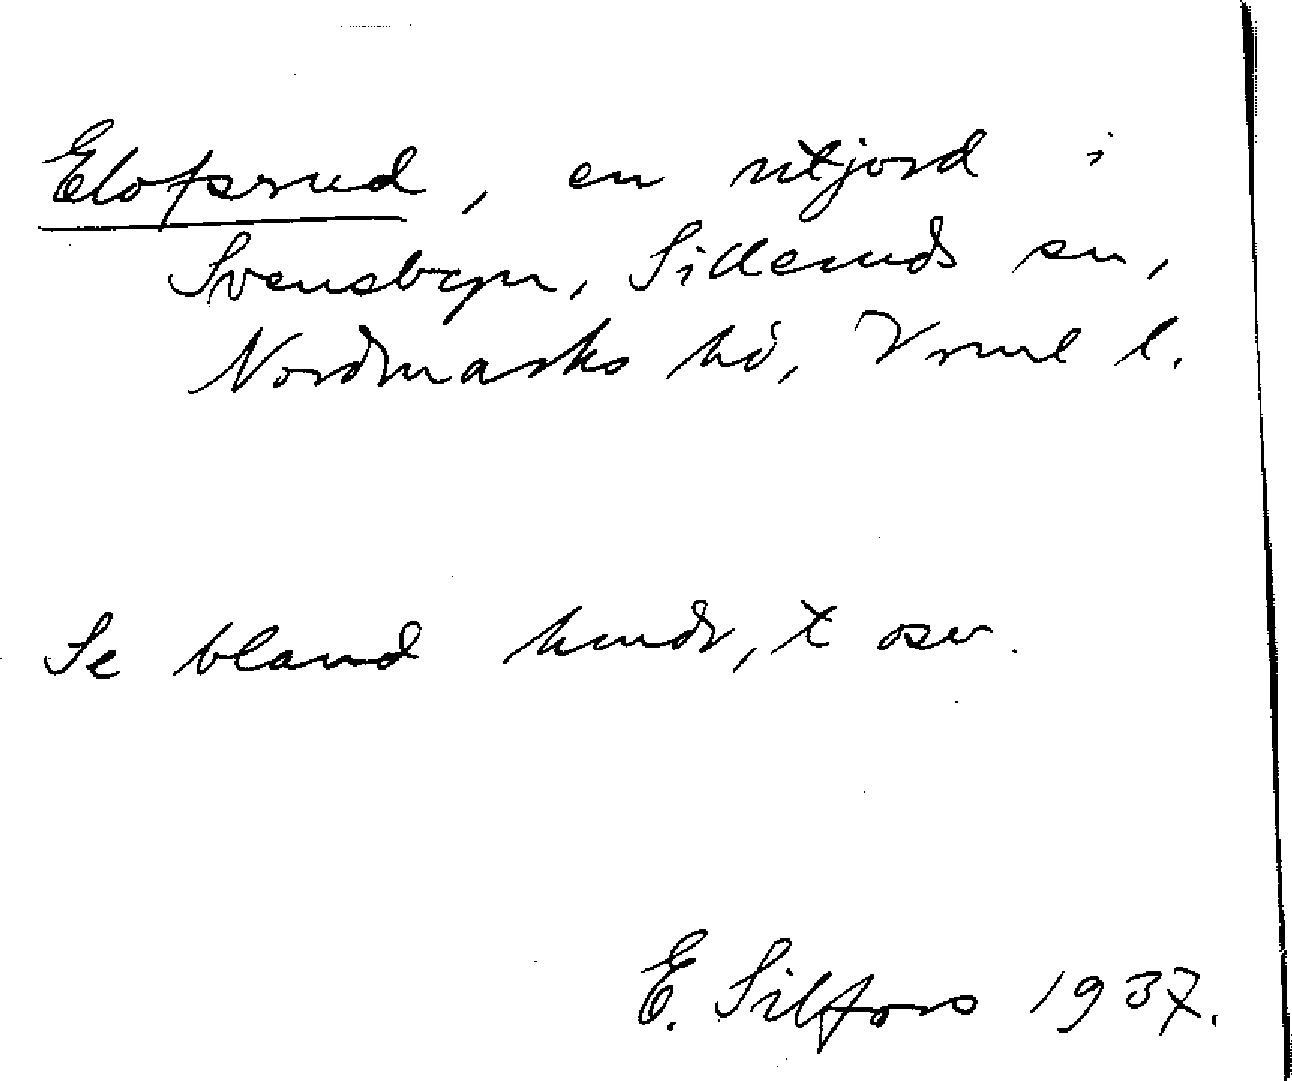 Elofsrud, en utjord i
Svensbyn, Silleruds sn,
Nordmarks hd, Vrml l.
Se bland hmdr, t osv.
E. Silfors 1937.